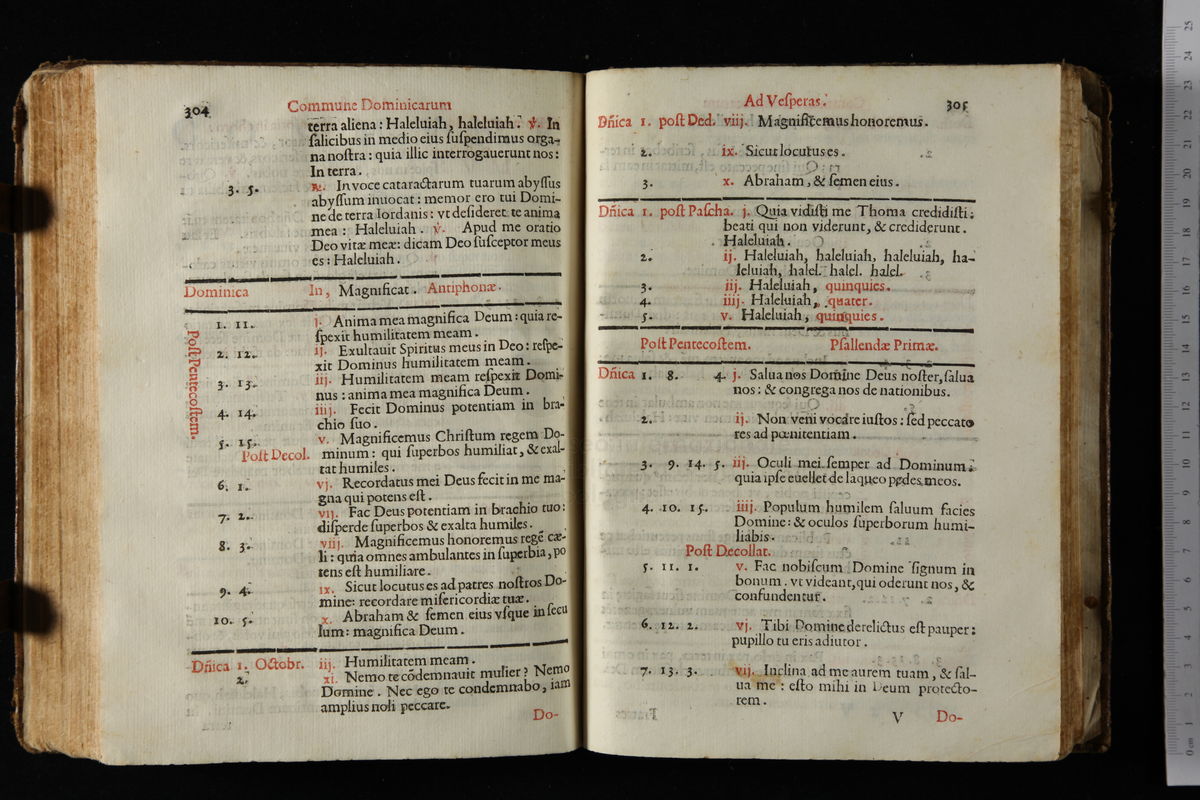 304
Commune Dominicarum
terra aliena: Haleluiah, haleluiah. ℣. In
salicibus in medio eius suspendimus orga-
na nostra: quia illic interrogauerunt nos:
In terra.
3. 5. ℟. In voce cataractarum tuarum abyssus
abyssum inuocat: memor ero tui Domi-
ne de terra Iordanis: vt desideret te anima
mea: Haleluiah. ℣. Apud me oratio
Deo vitæ meæ: dicam Deo susceptor meus
es: Haleluiah.
Dominica In, Magnificat. Antiphonæ.
Post Pentecostem.
1. 11. j. Anima mea magnifica Deum: quia re-
spexit humilitatem meam.
2. 12. ij. Exultauit Spiritus meus in Deo: respe-
xit Dominus humilitatem meam.
3. 13. iij. Humilitatem meam respexit Domi-
nus: anima mea magnifica Deum.
4. 14. iiij. Fecit Dominus potentiam in bra-
chio suo.
5. 15. v. Magnificemus Christum regem Do-
Post Decol. minum: qui superbos humiliat, & exal-
tat humiles.
6. 1. vj. Recordatus mei Deus fecit in me ma-
gna qui potens est.
7. 2. vij. Fac Deus potentiam in brachio tuo:
disperde superbos & exalta humiles.
8. 3. viij. Magnificemus honoremus regē cæ-
li: quia omnes ambulantes in superbia, po
tens est humiliare.
9. 4. ix. Sicut locutus es ad patres nostros Do-
mine: recordare misericordiæ tuæ.
10. 5. x. Abraham & semen eius vsque in secu
lum: magnifica Deum.
Dñica 1. Octobr. iij. Humilitatem meam.
2. xi. Nemo te cōdemnauit mulier? Nemo
Domine. Nec ego te condemnabo, iam
amplius noli peccare.
Do-
Ad Vesperas. 305
Dñica 1. post Ded. viij. Magnificemus honoremus.
2. ix. Sicut locutus es.
3. x. Abraham, & semen eius.
Dñica 1. post Pascha. j. Quia vidisti me Thoma credidisti:
beati qui non viderunt, & crediderunt.
Haleluiah.
2. ij. Haleluiah, haleluiah, haleluiah, ha-
leluiah, halel. halel. halel.
3. iij. Haleluiah, quinquies.
4. iiij. Haleluiah, quater.
5. v. Haleluiah, quinquies.
Post Pentecostem. Psallendæ Primæ.
Dñica 1. 8. 4. j. Salua nos Domine Deus noster, salua
nos: & congrega nos de nationibus.
2. ij. Non veni vocare iustos: sed peccato
res ad pœnitentiam.
3. 9. 14. 5. iij. Oculi mei semper ad Dominum:
quia ipse euellet de laqueo pedes meos.
4. 10. 15. iiij. Populum humilem saluum facies
Domine: & oculos superborum humi-
liabis.
Post Decollat.
5. 11. 1. v. Fac nobiscum Domine signum in
bonum. vt videant, qui oderunt nos, &
confundentur.
6. 12. 2. vj. Tibi Domine derelictus est pauper:
pupillo tu eris adiutor.
7. 13. 3. vij. Inclina ad me aurem tuam, & sal-
ua me: esto mihi in Deum protecto-
rem.
V Do-